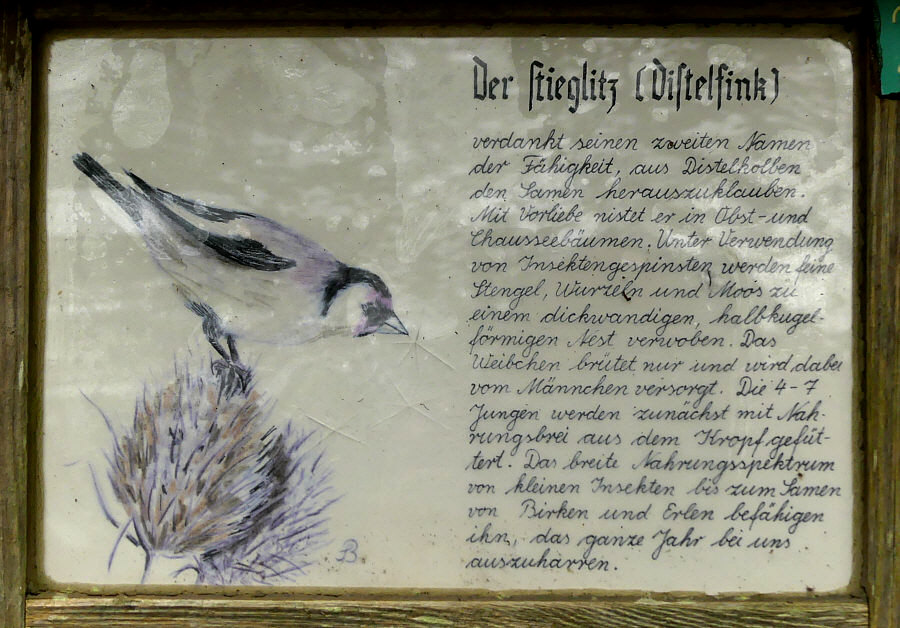 Der Stieglitz (Distelfink)
verdankt seinen zweiten Namen
der Fähigkeit, aus Distelkolben
den Samen herauszuklauben.
Mit Vorliebe nistet er in Obst- und
Chausseebäumen. Unter Verwendung
von Insektengespinsten werden feine
Stengel, Wurzeln und Moos zu
einem dickwandigen, halbkugel-
förmigen Nest verwoben. Das
Weibchen brütet nur und wird dabei
vom Männchen versorgt. Die 4-7
Jungen werden zunächst mit Nah-
rungsbrei aus dem Kropf gefüt-
tert. Das breite Nahrungsspektrum
von kleinen Insekten bis zum Samen
von Birken und Erlen befähigen
ihn, das ganze Jahr bei uns
auszuharren.
B.